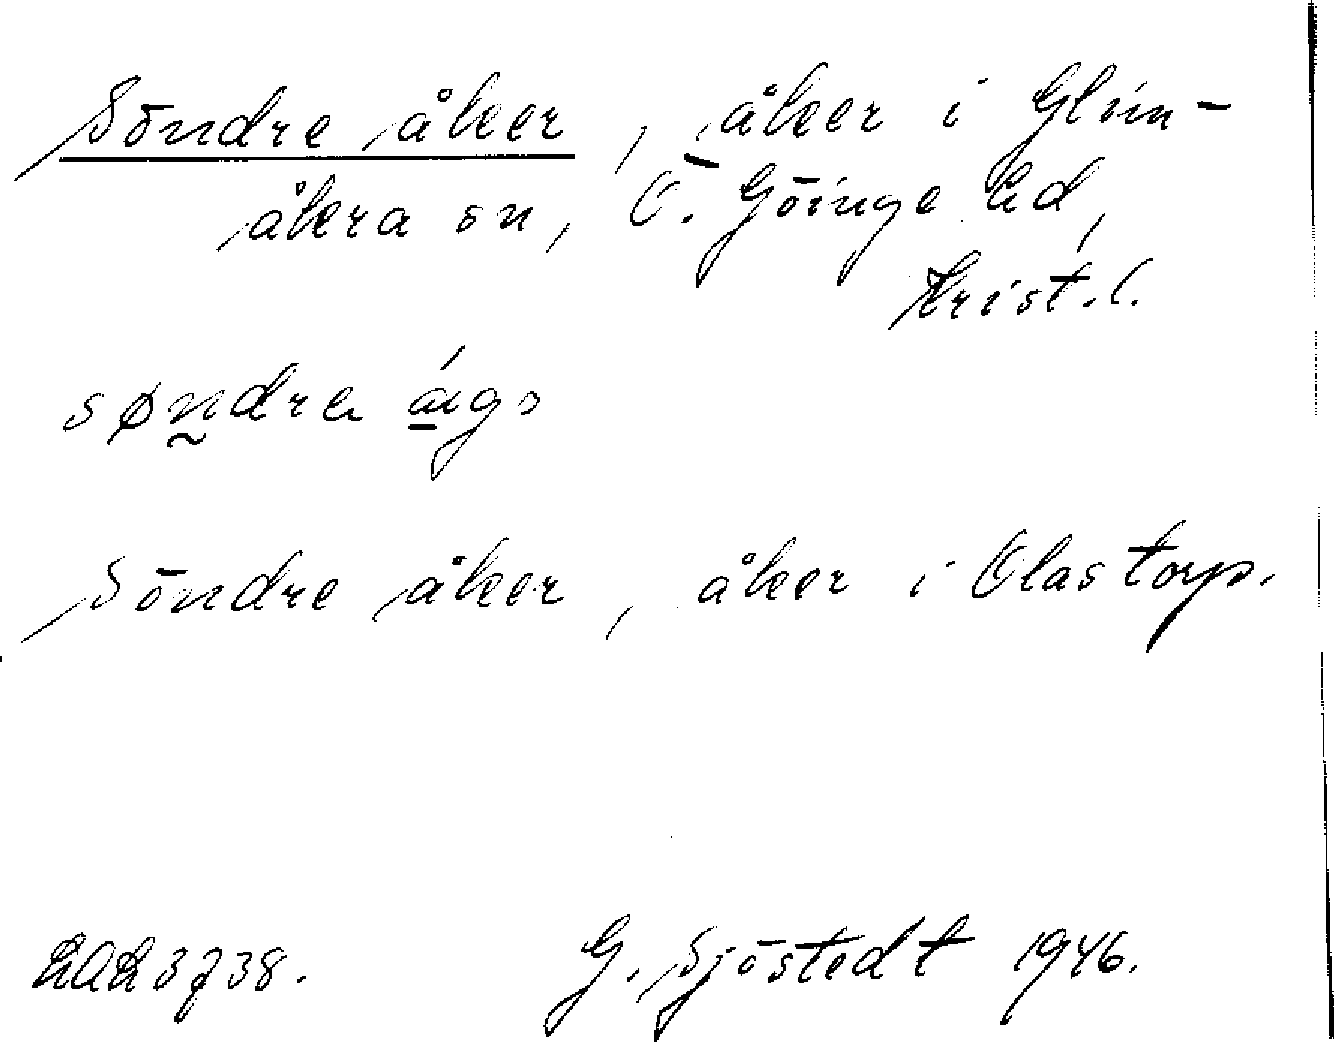 Söndre åker, åker i Glim-
åkra sn, Ö. Göinge hd,
Krist. l.
søndra
Söndre åker, åker i Olastorp.
G. Sjöstedt 1946.